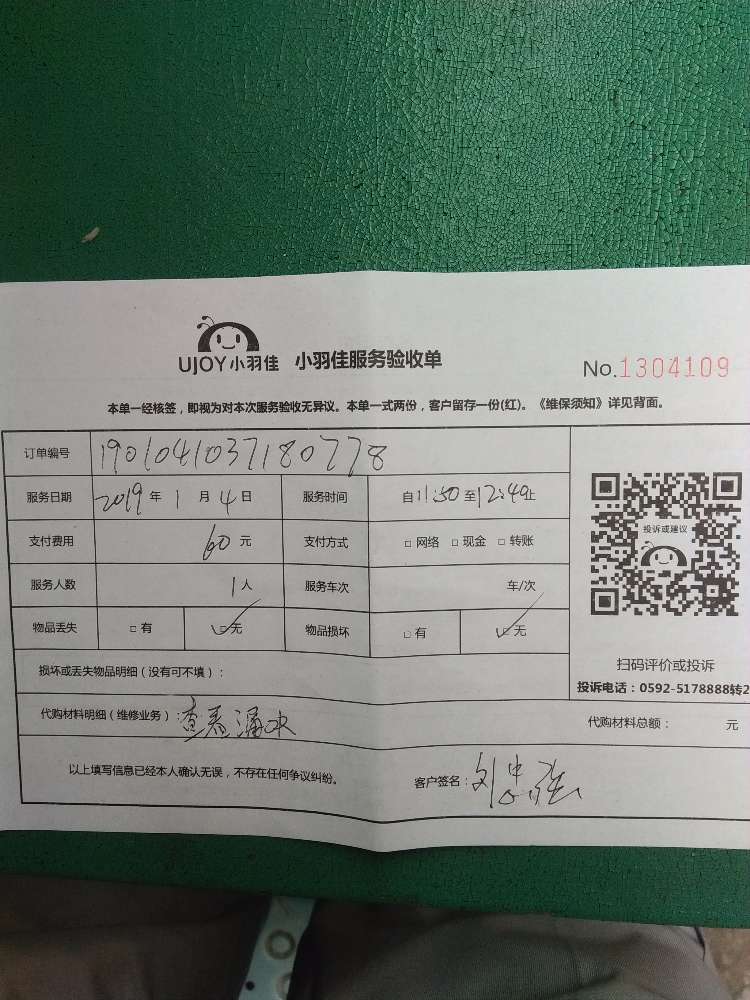 UJOY小羽佳 小羽佳服务验收单
No.1304109
本单一经核签，即视为对本次服务验收无异议。本单一式两份，客户留存一份(红)。《维保须知》详见背面。
订单编号 1901041037180778
服务日期 2019年1月4日 服务时间 自11:50至12:49止
投诉或建议
支付费用 60元 支付方式 □网络 □现金 □转账
服务人数 1人 服务车次 车/次
物品丢失 □有 ☑无 物品损坏 □有 ☑无
扫码评价或投诉
损坏或丢失物品明细（没有可不填）：
投诉电话：0592-5178888转2
代购材料明细（维修业务）：查看漏水 代购材料总额： 元
以上填写信息已经本人确认无误，不存在任何争议纠纷。 客户签名：刘忠